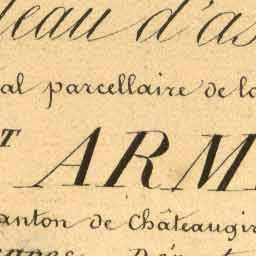 leau d'as
al parcellaire de la
T ARM
anton de Châteaugir